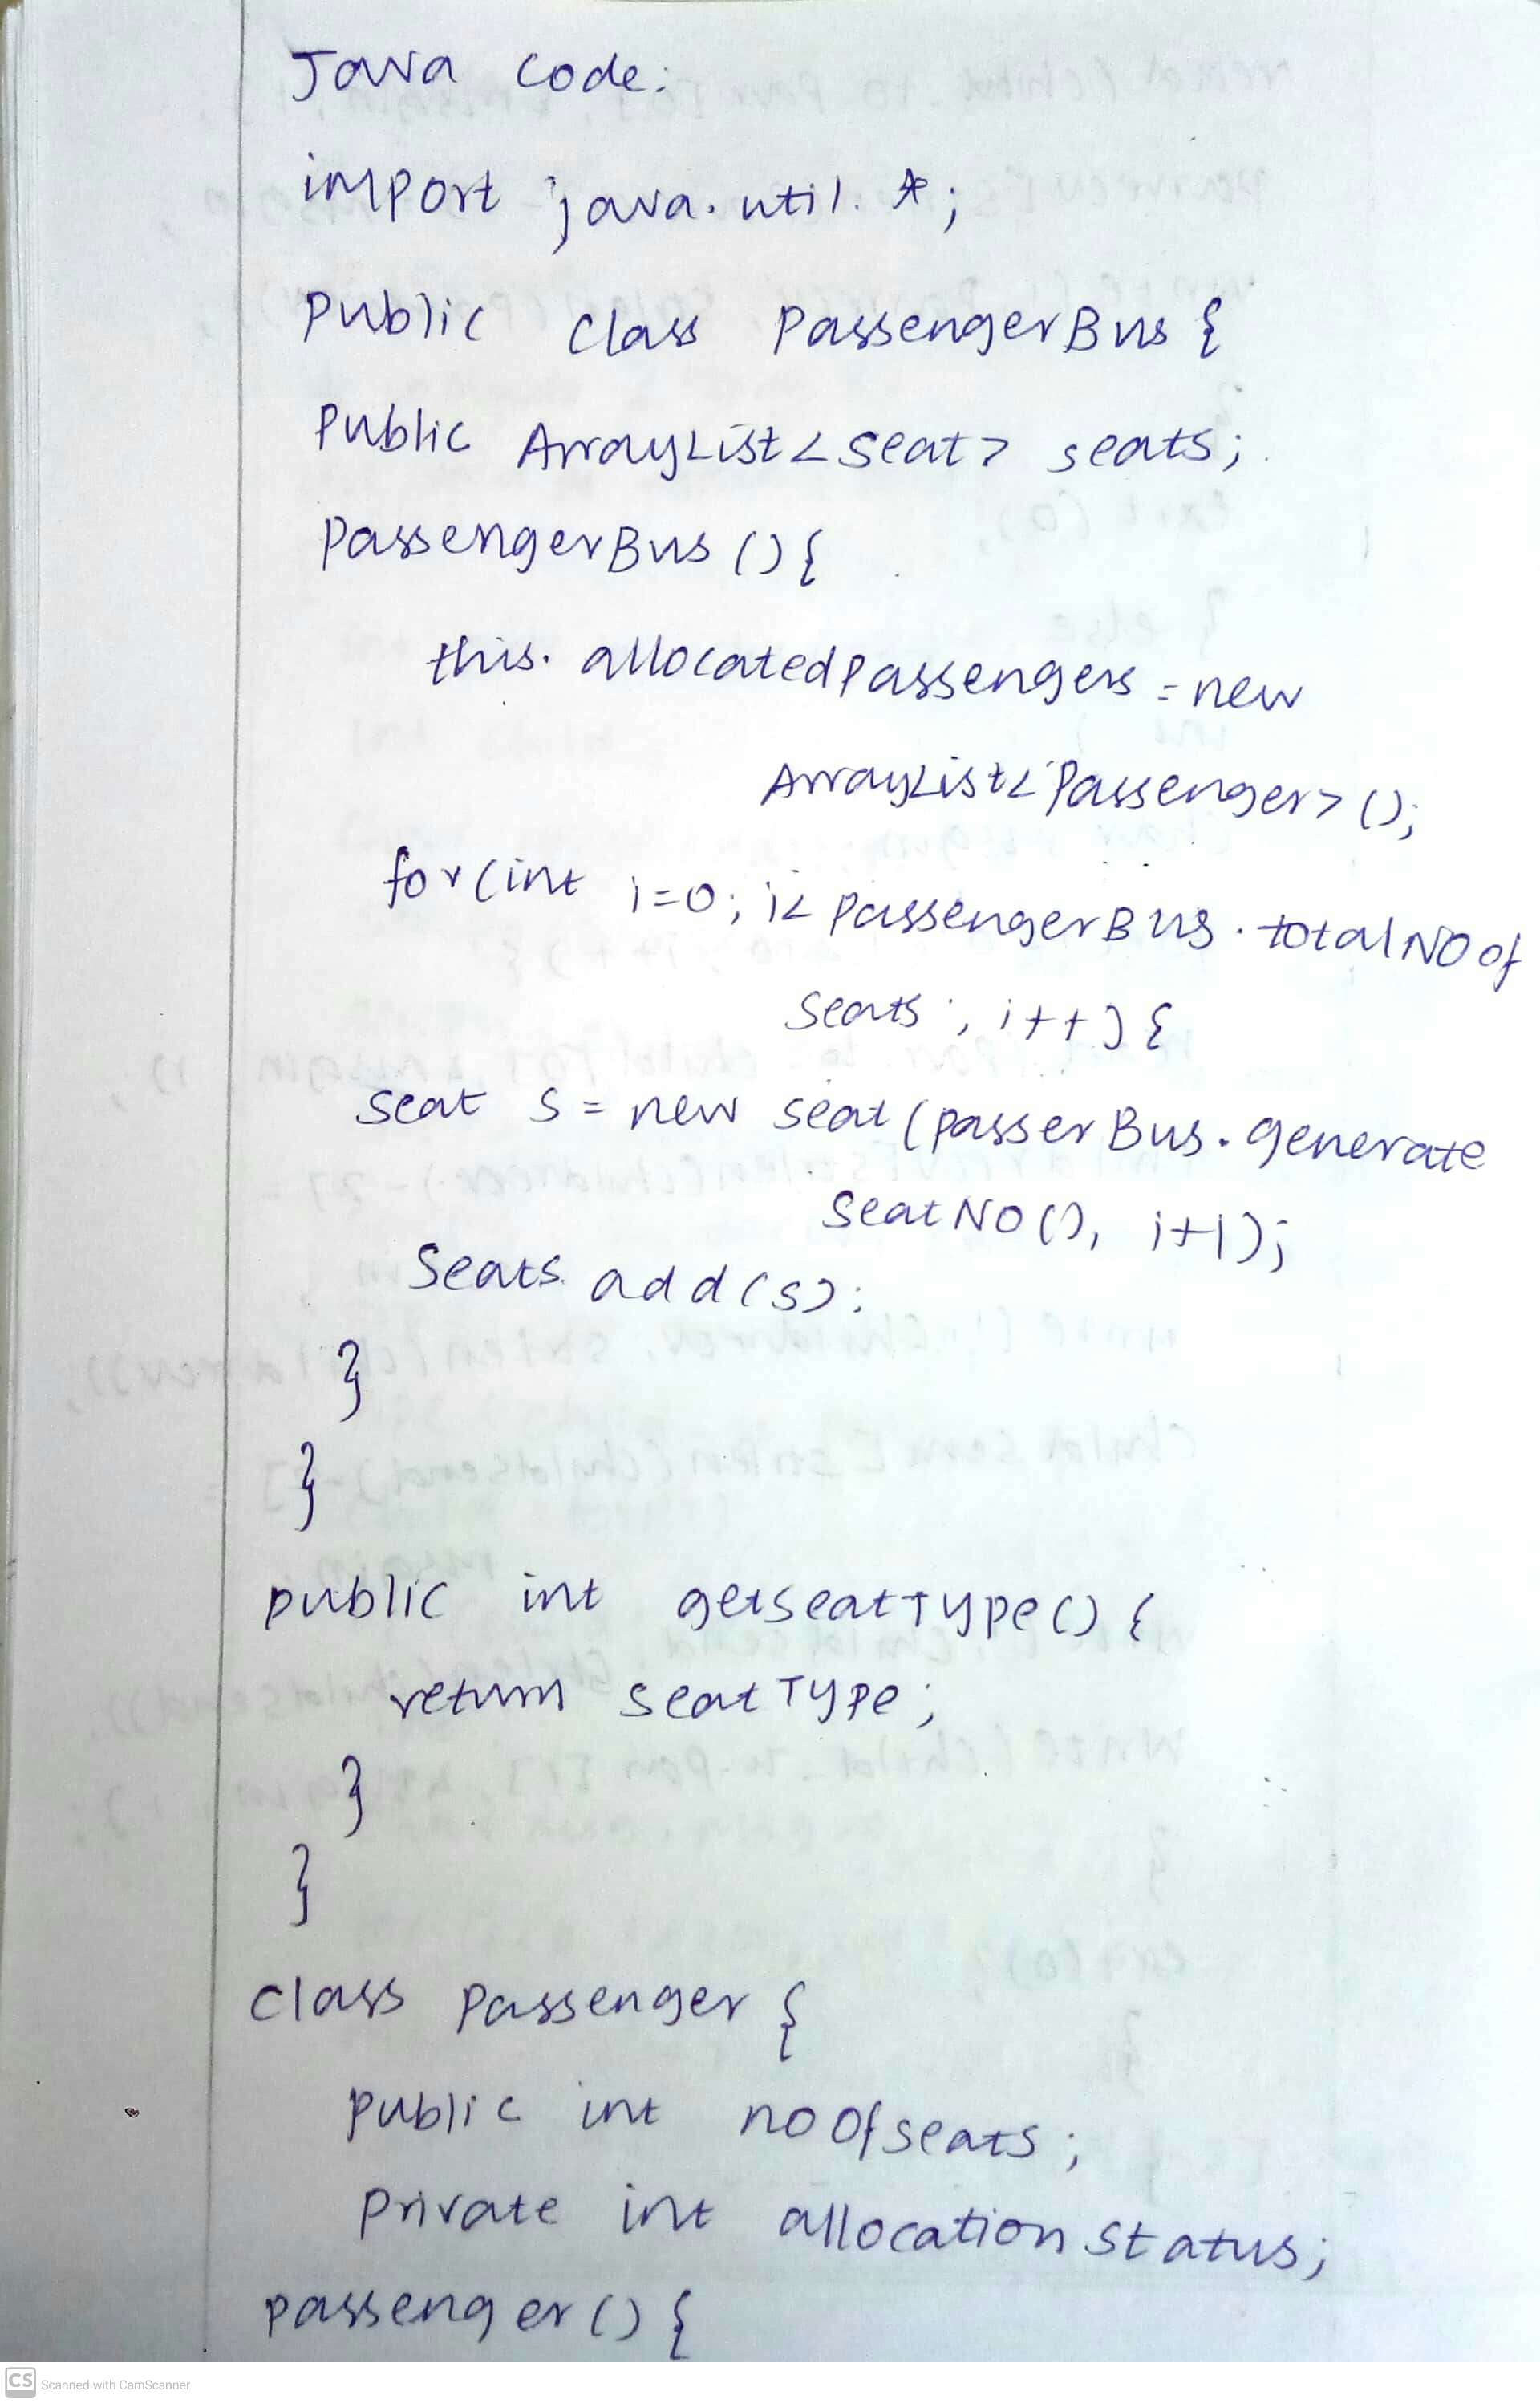 Java code:
import java.util.*;
public class PassengerBus {
public ArrayList<Seat> seats;
PassengerBus(){
this.allocatedPassengers = new
ArrayList<Passenger>();
for(int i=0; i< PassengerBus.totalNOof
Seats; i++){
Seat s = new Seat(passerBus.generate
SeatNO(), i+1);
Seats.add(s);
}
}
public int getSeatType() {
return SeatType;
}
}
class Passenger {
public int noOfSeats;
private int allocationStatus;
passenger() {
CS Scanned with CamScanner